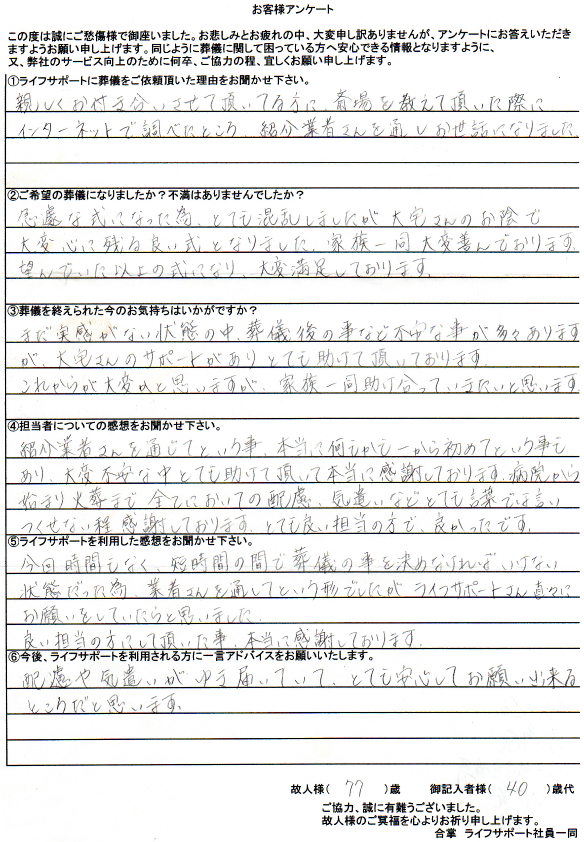 お客様アンケート
この度は誠にご愁傷様で御座いました。お悲しみとお疲れの中、大変申し訳ありませんが、アンケートにお答えいただき
ますようお願い申し上げます。同じように葬儀に関して困っている方へ安心できる情報となりますように、
又、弊社のサービス向上のために何卒、ご協力の程、宜しくお願い申し上げます。
①ライフサポートに葬儀をご依頼頂いた理由をお聞かせ下さい。
親しくお付き合いさせて頂いてる方に、斎場を教えて頂いた際に
インターネットで調べたところ、紹介業者さんを通しお世話になりました
②ご希望の葬儀になりましたか？不満はありませんでしたか？
急遽な式になった為、とても混乱しましたが大宅さんのお陰で
大変心に残る良い式となりました。家族一同大変喜んでおります。
望んでいた以上の式になり、大変満足しております。
③葬儀を終えられた今のお気持ちはいかがですか？
まだ実感がない状態の中、葬儀後の事など不安な事が多々あります
が、大宅さんのサポートがありとても助けて頂いております。
これからが大変かと思いますが、家族一同助け合っていきたいと思います
④担当者についての感想をお聞かせ下さい。
紹介業者さんを通じてという事、本当に何もかも一から初めてという事も
あり、大変不安な中とても助けて頂いて本当に感謝しております。病院から
始まり火葬まで全てにおいての配慮、気遣いなどとても言葉では言い
つくせない程感謝しております。とても良い担当の方で、良かったです。
⑤ライフサポートを利用した感想をお聞かせ下さい。
今回時間もなく、短時間の間で葬儀の事を決めなければいけない
状態だった為、業者さんを通してという形でしたが、ライフサポートさん直々に
お願いをしていたらと思いました。
良い担当の方にして頂いた事、本当に感謝しております。
⑥今後、ライフサポートを利用される方に一言アドバイスをお願いいたします。
配慮や気遣いがゆき届いていて、とても安心してお願い出来る
ところだと思います。
故人様( 77 )歳　御記入者様( 40 )歳代
ご協力、誠に有難うございました。
故人様のご冥福を心よりお祈り申し上げます。
合掌　ライフサポート社員一同